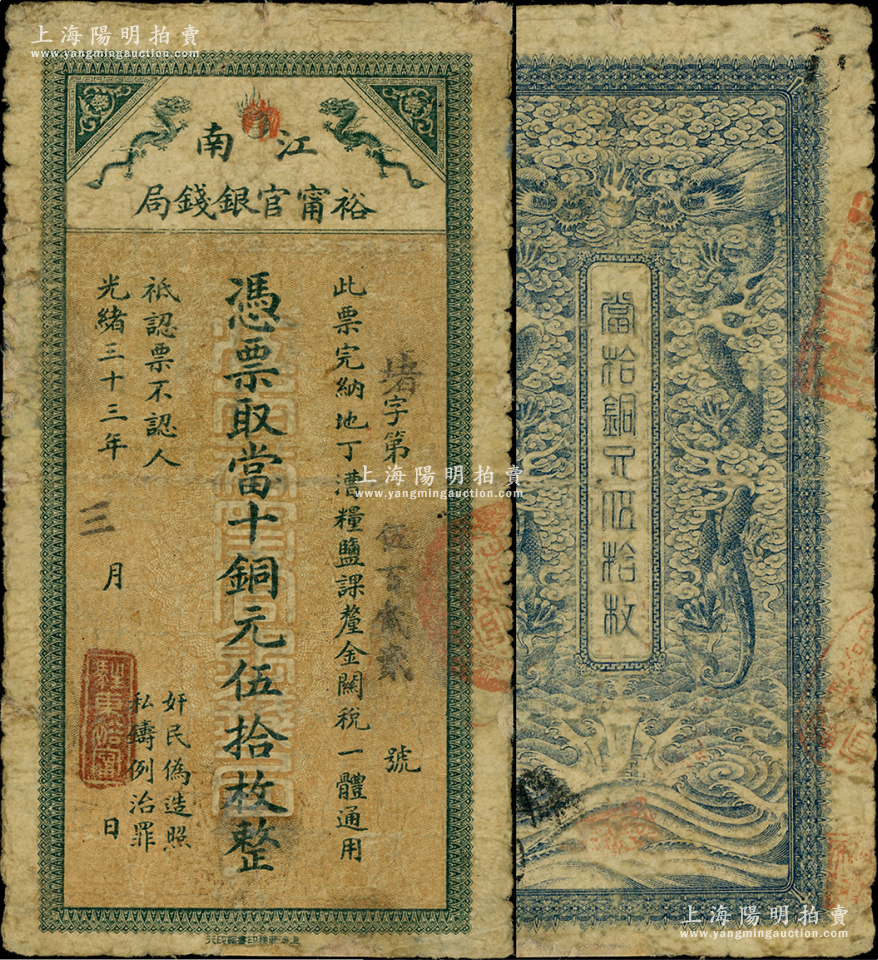 上海陽明拍賣
www.yangmingauction.com
江南
裕甯官銀錢局
字第伍百貳號
此票完納地丁漕糧鹽課釐金關稅一體通用
憑票取當十銅元伍拾枚整
祗認票不認人
光緒三十三年三月日
奸民偽造照
私鑄例治罪
當拾銅元伍拾枚
上海陽明拍賣
www.yangmingauction.com
上海陽明拍賣
www.yangmingauction.com